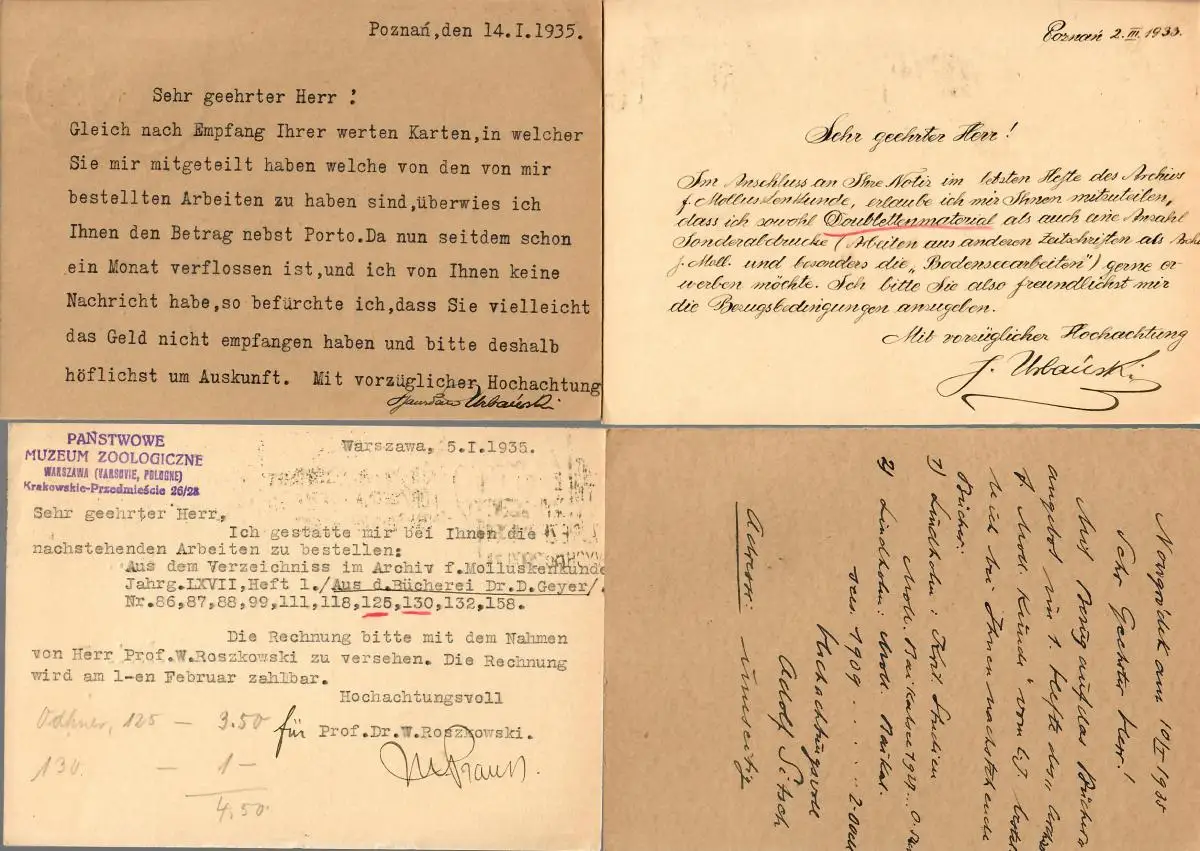 Poznań,den 14.I.1935.
Sehr geehrter Herr !
Gleich nach Empfang Ihrer werten Karten,in welcher
Sie mir mitgeteilt haben welche von den von mir
bestellten Arbeiten zu haben sind,überwies ich
Ihnen den Betrag nebst Porto.Da nun seitdem schon
ein Monat verflossen ist,und ich von Ihnen keine
Nachricht habe,so befürchte ich,dass Sie vielleicht
das Geld nicht empfangen haben und bitte deshalb
höflichst um Auskunft. Mit vorzüglicher Hochachtung
Urbański
Poznań 2.III.1933.
Sehr geehrter Herr!
Im Anschluss an Ihre Notiz im letzten Hefte des Archivs
f. Molluskenkunde, erlaube ich mir Ihnen mitzuteilen,
dass ich sowohl Doublettenmaterial als auch eine Anzahl
Sonderabdrucke (Arbeiten aus anderen Zeitschriften als
f. Moll. und besonders die „Bodenseearbeiten") gerne er-
werben möchte. Ich bitte Sie also freundlichst mir
die Bezugsbedingungen anzugeben.
Mit vorzüglicher Hochachtung
J. Urbański
PAŃSTWOWE
MUZEUM ZOOLOGICZNE
WARSZAWA (VARSOVIE, POLOGNE)
Krakowskie-Przedmieście 26/28
Warszawa, 5.I.1935.
Sehr geehrter Herr,
Ich gestatte mir bei Ihnen die
nachstehenden Arbeiten zu bestellen:
Aus dem Verzeichniss im Archiv f.Molluskenkunde
Jahrg.LXVII,Heft 1./Aus d.Bücherei Dr.D.Geyer/.
Nr.86,87,88,99,111,118,125,130,132,158.
Die Rechnung bitte mit dem Nahmen
von Herr Prof.W.Roszkowski zu versehen. Die Rechnung
wird am 1-en Februar zahlbar.
Hochachtungsvoll
für Prof.Dr.W.Roszkowski.
Odhner, 125 — 3.50
130 — 1 —
4,50
am 10/I 1935
Sehr Geehrter Herr!
Mit Bezug auf das
angebot im 1. Hefte des „
f. Moll. Kunde" vom
bei Ihnen nachstehende
Bücher:
1) Lindholm: Krit. Studien
Moll.
2) Lindholm: Moll. Baikal.
1909
Hochachtungsvoll
Adolf
Adresse: umseitig